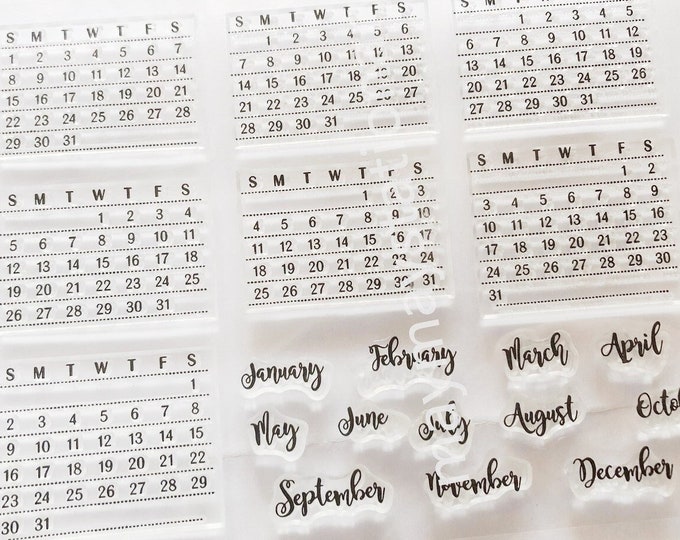 S M T W T F S
1 2 3 4 5 6 7
8 9 10 11 12 13 14
15 16 17 18 19 20 21
22 23 24 25 26 27 28
29 30 31
S M T W T F S
1 2 3 4 5 6
7 8 9 10 11 12 13
14 15 16 17 18 19 20
21 22 23 24 25 26 27
28 29 30 31
S M T W T F S
1 2 3 4 5
6 7 8 9 10 11 12
13 14 15 16 17 18 19
20 21 22 23 24 25 26
27 28 29 30 31
S M T W T F S
1 2 3 4
5 6 7 8 9 10 11
12 13 14 15 16 17 18
19 20 21 22 23 24 25
26 27 28 29 30 31
S M T W T F S
1 2 3
4 5 6 7 8 9 10
11 12 13 14 15 16 17
18 19 20 21 22 23 24
25 26 27 28 29 30 31
S M T W T F S
1 2
3 4 5 6 7 8 9
10 11 12 13 14 15 16
17 18 19 20 21 22 23
24 25 26 27 28 29 30
31
S M T W T F S
1
2 3 4 5 6 7 8
9 10 11 12 13 14 15
16 17 18 19 20 21 22
23 24 25 26 27 28 29
30 31
January February March April
May June July August Octo
September November December